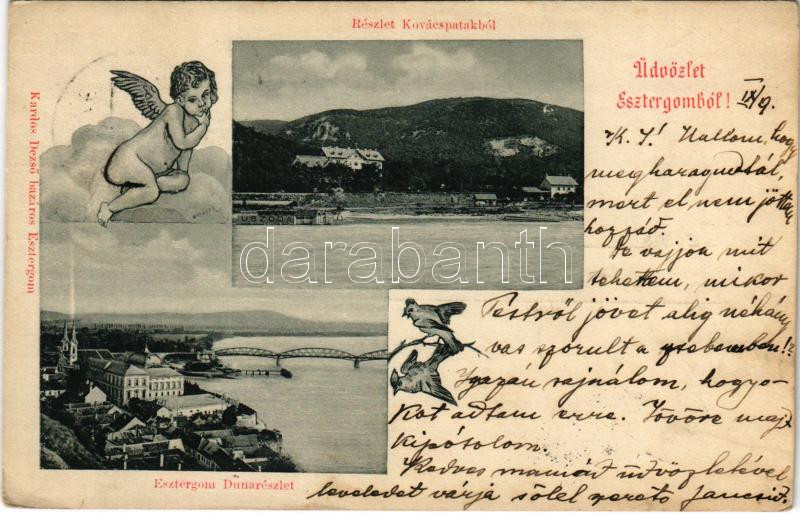 Részlet Kovácspatakból
Üdvözlet
Esztergomból!
IX/9.
K. J! Hallom, hogy
megharagudtál,
mert el nem jöttem
hozzád.
De vajjon mit
tehettem, mikor
Pestről jövet alig néhány
vas szorult a zsebemben!?
Igazán sajnálom, hogy
okot adtam erre. Jövőre majd
kipótolom.
Kedves mamád üdvözletével
leveledet várja sőlel szerető Jancsid.
Kardos Dezső bazáros Esztergom
USZODA
darabanth
Esztergom Dunarészlet